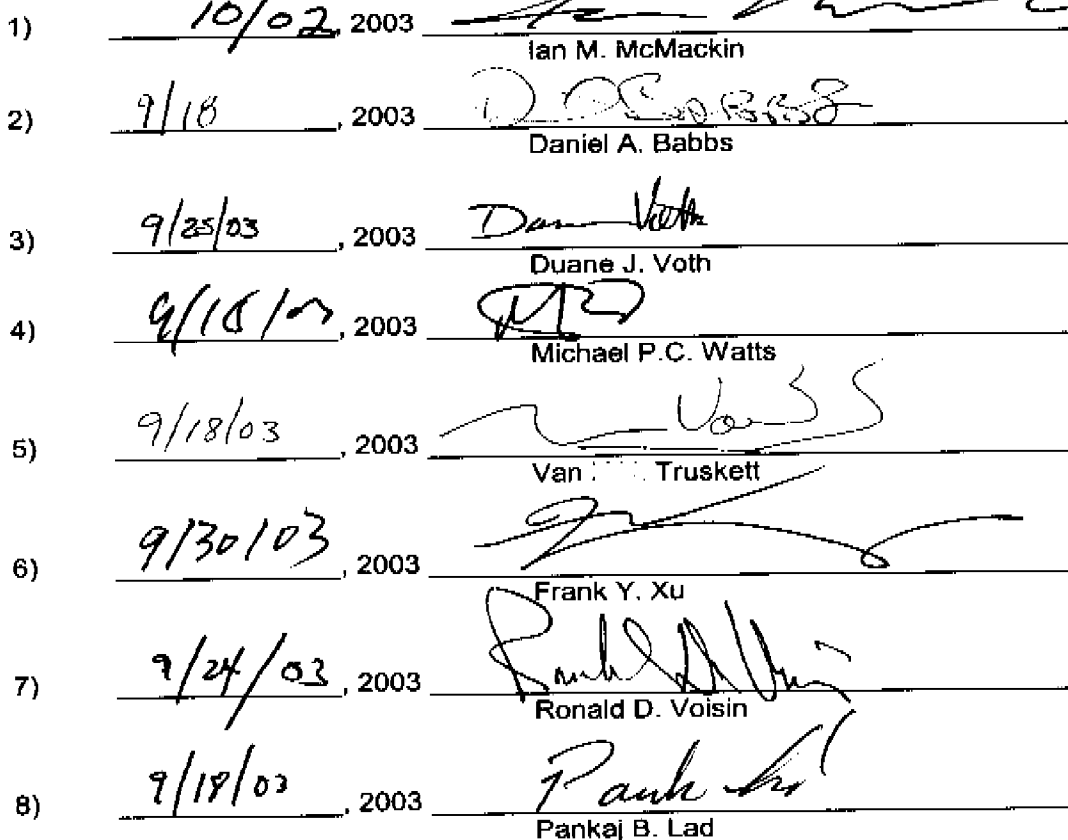 1) 10/02, 2003
Ian M. McMackin
2) 9/18, 2003 D A Babbs
Daniel A. Babbs
3) 9/25/03, 2003 Duane Voth
Duane J. Voth
4) 9/18/03, 2003
Michael P.C. Watts
5) 9/18/03, 2003 Van
Van Truskett
6) 9/30/03, 2003
Frank Y. Xu
7) 9/24/03, 2003
Ronald D. Voisin
8) 9/18/03, 2003
Pankaj B. Lad